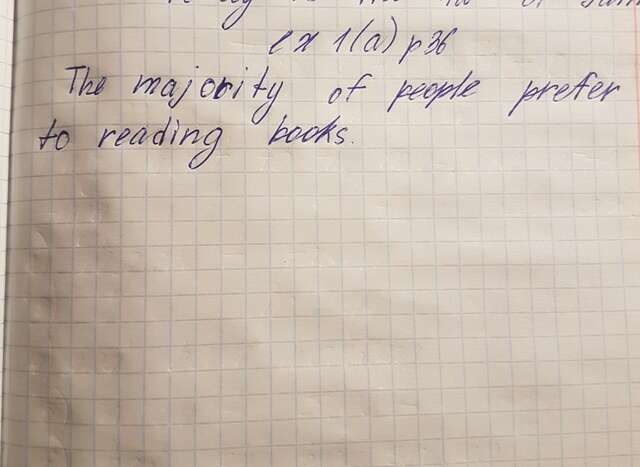 ex 1(a) p36
The majority of people prefer
to reading books.